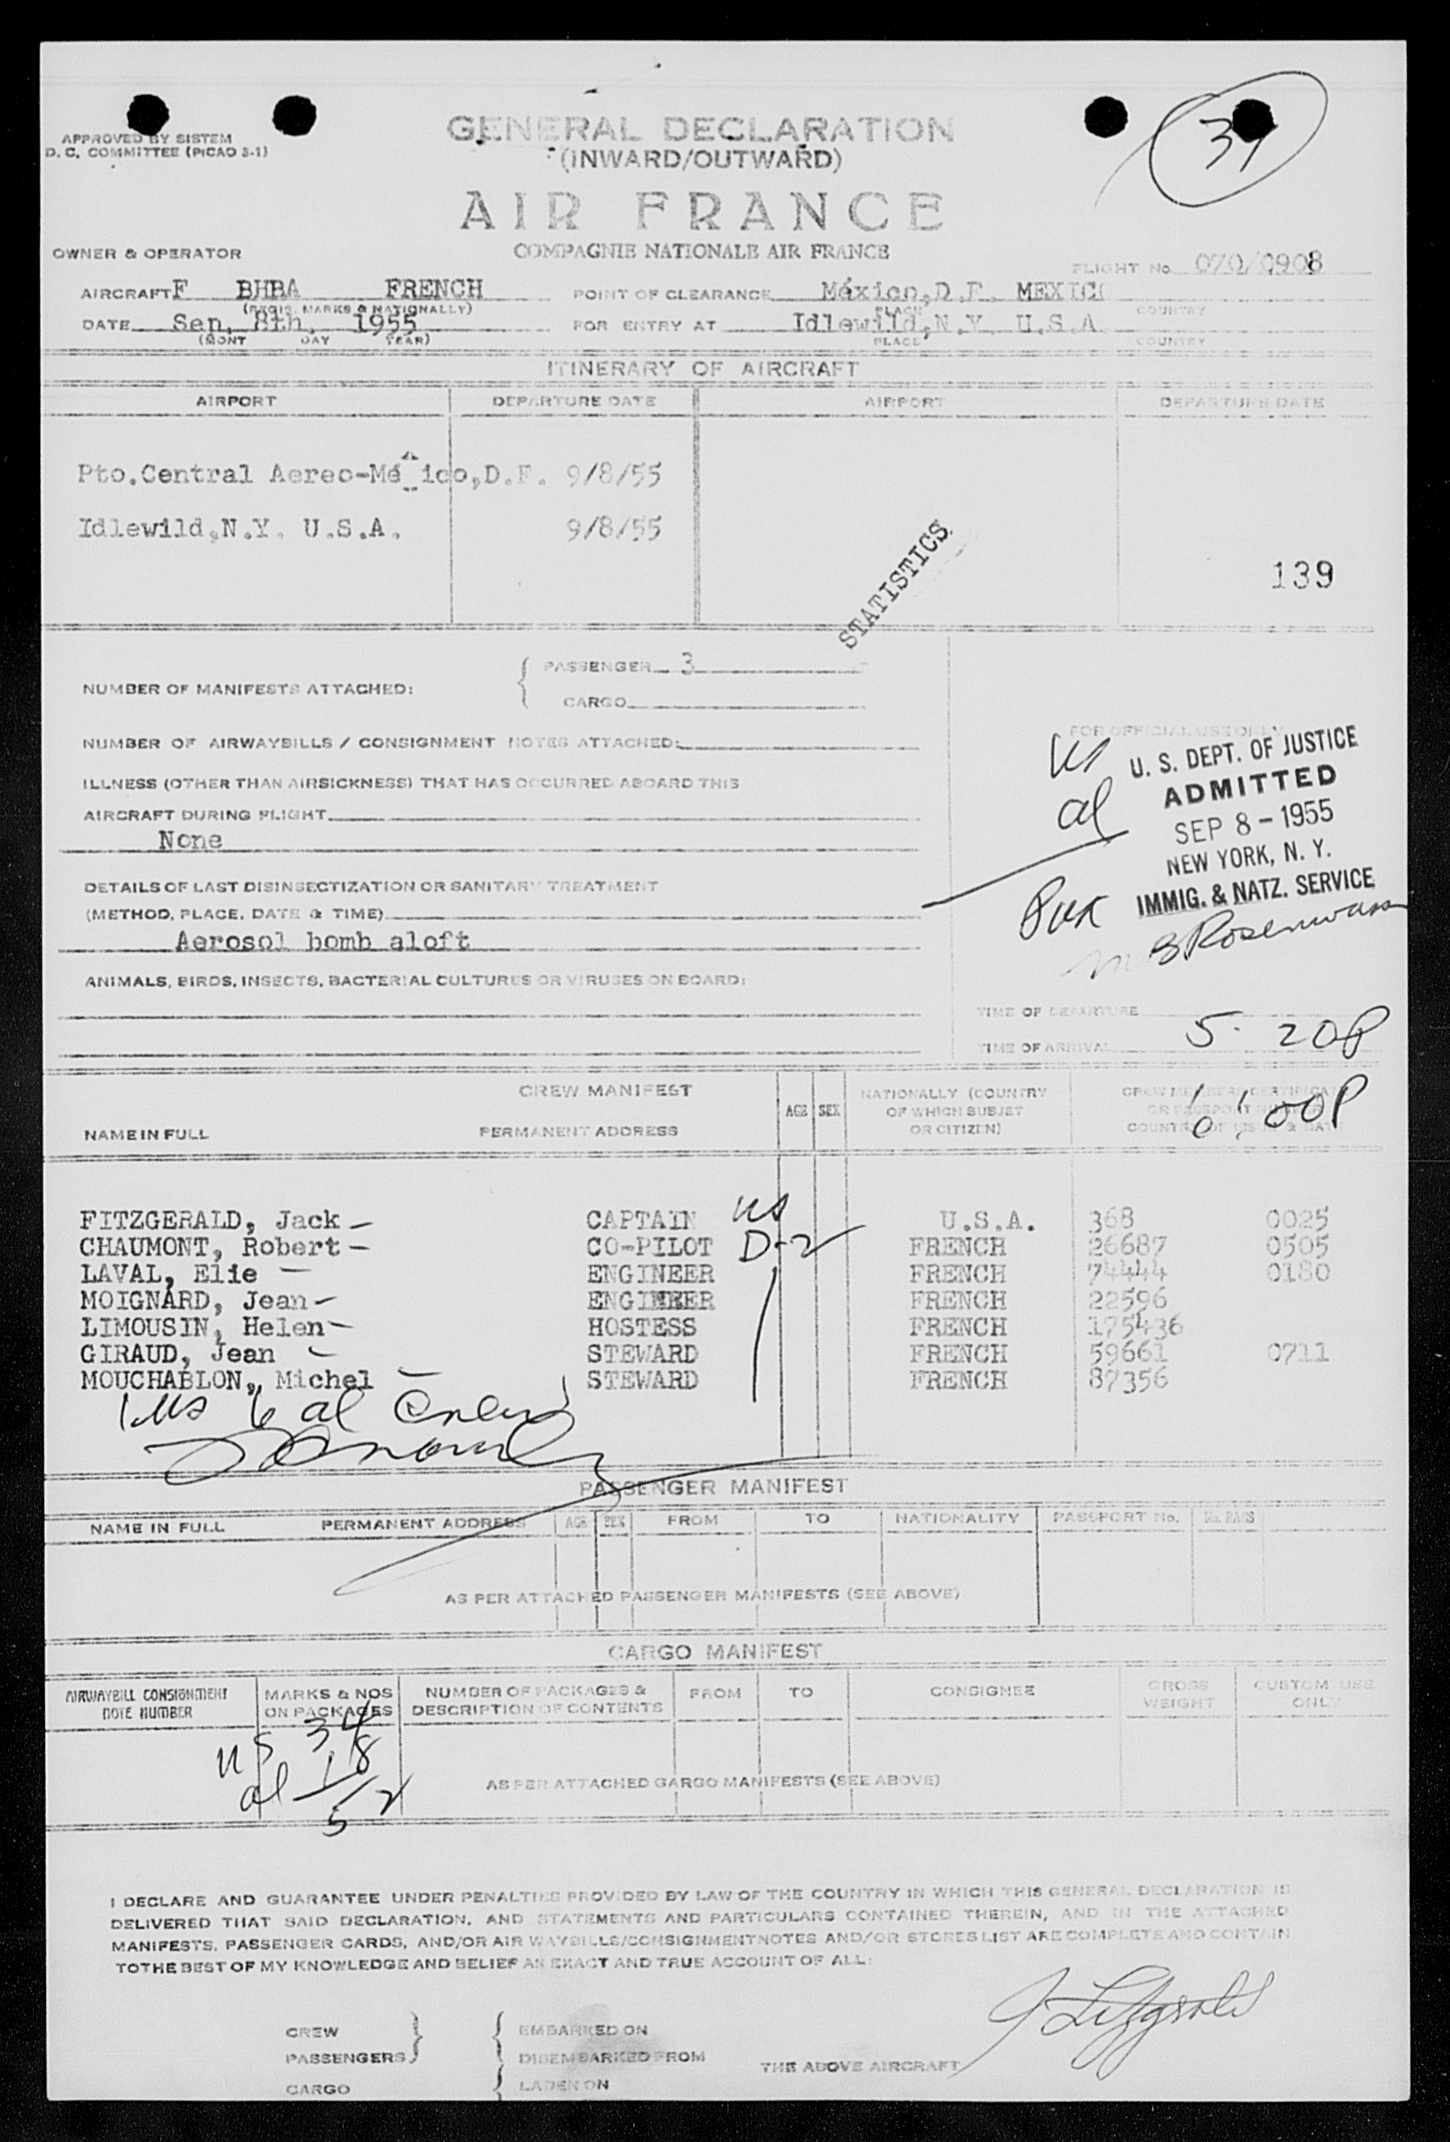 APPROVED BY SISTEM
D. C. COMMITTEE (PICAO 3-1)
GENERAL DECLARATION
(INWARD/OUTWARD)
AIR FRANCE
COMPAGNIE NATIONALE AIR FRANCE
OWNER & OPERATOR
FLIGHT No. 070/0908
AIRCRAFT F BHBA FRENCH
(REGIS. MARKS & NATIONALLY)
POINT OF CLEARANCE México, D.F. MEXIC
PLACE COUNTRY
DATE Sep. 8th, 1955
(MONT DAY YEAR)
FOR ENTRY AT Idlewild, N.Y. U.S.A.
PLACE COUNTRY
ITINERARY OF AIRCRAFT
AIRPORT DEPARTURE DATE AIRPORT DEPARTURE DATE
Pto.Central Aereo-Mé ico,D.F. 9/8/55
Idlewild,N.Y. U.S.A. 9/8/55
STATISTICS
139
NUMBER OF MANIFESTS ATTACHED: { PASSENGER 3
CARGO
NUMBER OF AIRWAYBILLS / CONSIGNMENT NOTES ATTACHED:
ILLNESS (OTHER THAN AIRSICKNESS) THAT HAS OCCURRED ABOARD THIS
AIRCRAFT DURING FLIGHT
None
DETAILS OF LAST DISINSECTIZATION OR SANITARY TREATMENT
(METHOD, PLACE, DATE & TIME)
Aerosol bomb aloft
ANIMALS, BIRDS, INSECTS, BACTERIAL CULTURES OR VIRUSES ON BOARD:
FOR OFFICIAL USE ONLY
us
al
U. S. DEPT. OF JUSTICE
ADMITTED
SEP 8 - 1955
NEW YORK, N. Y.
IMMIG. & NATZ. SERVICE
TIME OF DEPARTURE
TIME OF ARRIVAL
5.20P
6:00P
CREW MANIFEST
NAME IN FULL PERMANENT ADDRESS AGE SEX
NATIONALLY (COUNTRY
OF WHICH SUBJET
OR CITIZEN)
FITZGERALD, Jack CAPTAIN us U.S.A. 368 0025
CHAUMONT, Robert CO-PILOT D-2 FRENCH 26687 0505
LAVAL, Elie ENGINEER FRENCH 74444 0180
MOIGNARD, Jean ENGINEER FRENCH 22596
LIMOUSIN, Helen HOSTESS FRENCH 175436
GIRAUD, Jean STEWARD FRENCH 59661 0711
MOUCHABLON, Michel STEWARD FRENCH 87356
1 us 6 al crew
PASSENGER MANIFEST
NAME IN FULL PERMANENT ADDRESS AGE SEX FROM TO NATIONALITY PASSPORT No. No. PASS
AS PER ATTACHED PASSENGER MANIFESTS (SEE ABOVE)
CARGO MANIFEST
AIRWAYBILL CONSIGNMENT
NOTE NUMBER
MARKS & NOS
ON PACKAGES
NUMBER OF PACKAGES &
DESCRIPTION OF CONTENTS
FROM TO CONSIGNEE
GROSS
WEIGHT
CUSTOM USE
ONLY
us 34
al 18
52
AS PER ATTACHED CARGO MANIFESTS (SEE ABOVE)
I DECLARE AND GUARANTEE UNDER PENALTIES PROVIDED BY LAW OF THE COUNTRY IN WHICH THIS GENERAL DECLARATION IS
DELIVERED THAT SAID DECLARATION, AND STATEMENTS AND PARTICULARS CONTAINED THEREIN, AND IN THE ATTACHED
MANIFESTS, PASSENGER CARDS, AND/OR AIR WAYBILLS/CONSIGNMENTNOTES AND/OR STORES LIST ARE COMPLETE AND CONTAIN
TOTHE BEST OF MY KNOWLEDGE AND BELIEF AN EXACT AND TRUE ACCOUNT OF ALL:
J Fitzgerald
CREW
PASSENGERS
CARGO
EMBARKED ON
DISEMBARKED FROM
LADEN ON
THE ABOVE AIRCRAFT